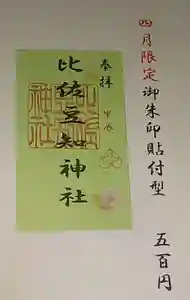 四月限定御朱印貼付型 五百円
奉拝
比佐豆知神社